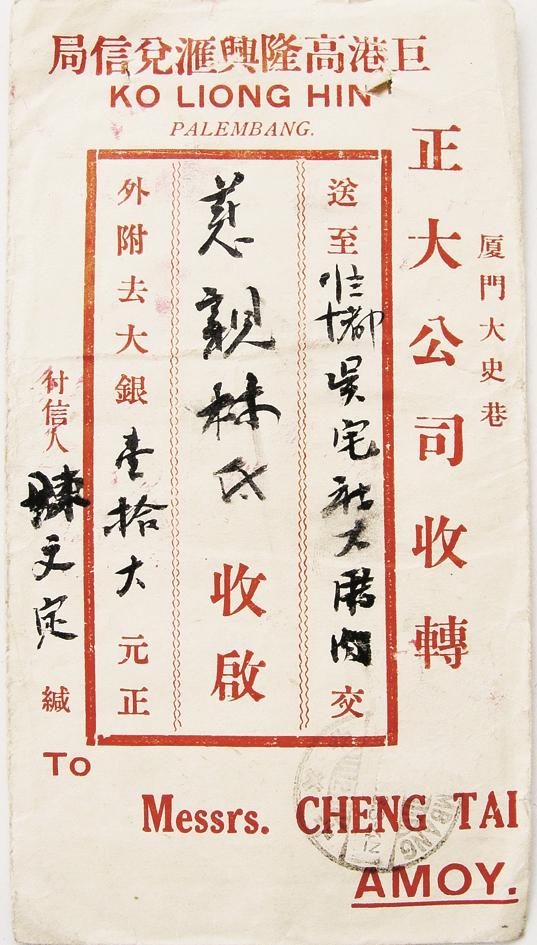 局信兌滙興隆高港巨
KO LIONG HIN
PALEMBANG.
厦門大史巷
正大公司收轉
送至
十都吳宅社大
內交
慈親林氏收啟
外附去大銀壹拾大元正
付信人陳文定緘
To
Messrs. CHENG TAI
AMOY.